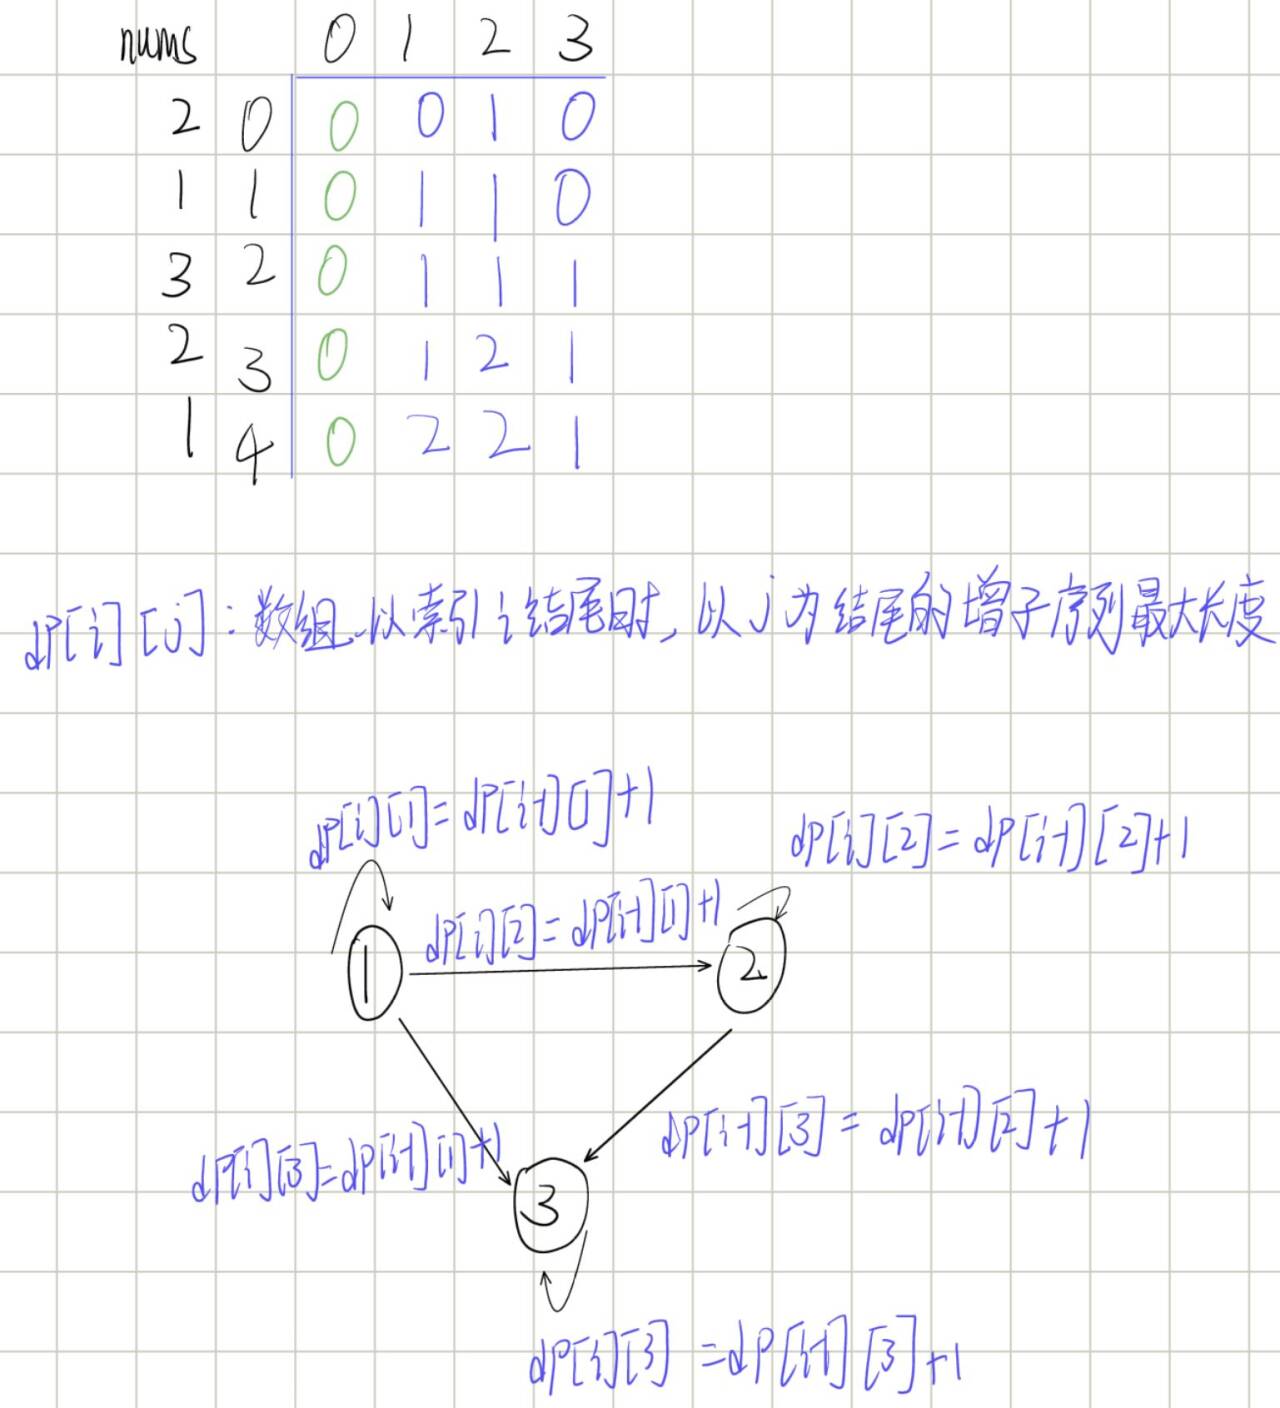 nums 0 1 2 3
2 0 0 0 1 0
1 1 0 1 1 0
3 2 0 1 1 1
2 3 0 1 2 1
1 4 0 2 2 1
dP[i][j]:数组以索引i结尾时,以j为结尾的增子序列最大长度
dP[i][1]=dP[i-1][1]+1
dP[i][2]=dP[i-1][2]+1
dP[i][2]=dP[i-1][1]+1
1
2
dP[i-1][3]=dP[i-1][2]+1
dP[i][3]=dP[i-1][1]+1
3
dP[i][3]=dP[i-1][3]+1